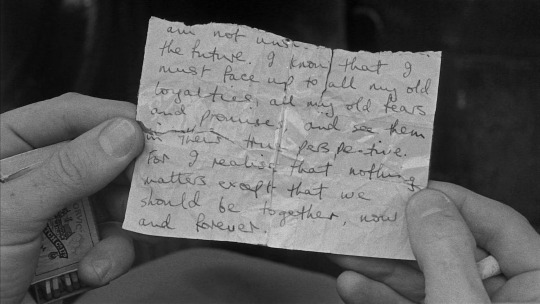 am not
the future. I know that I
must face up to all my old
loyalties, all my old fears
and promises, and see them
in their true perspective.
For I realise that nothing
matters except that we
should be together, now
and forever.